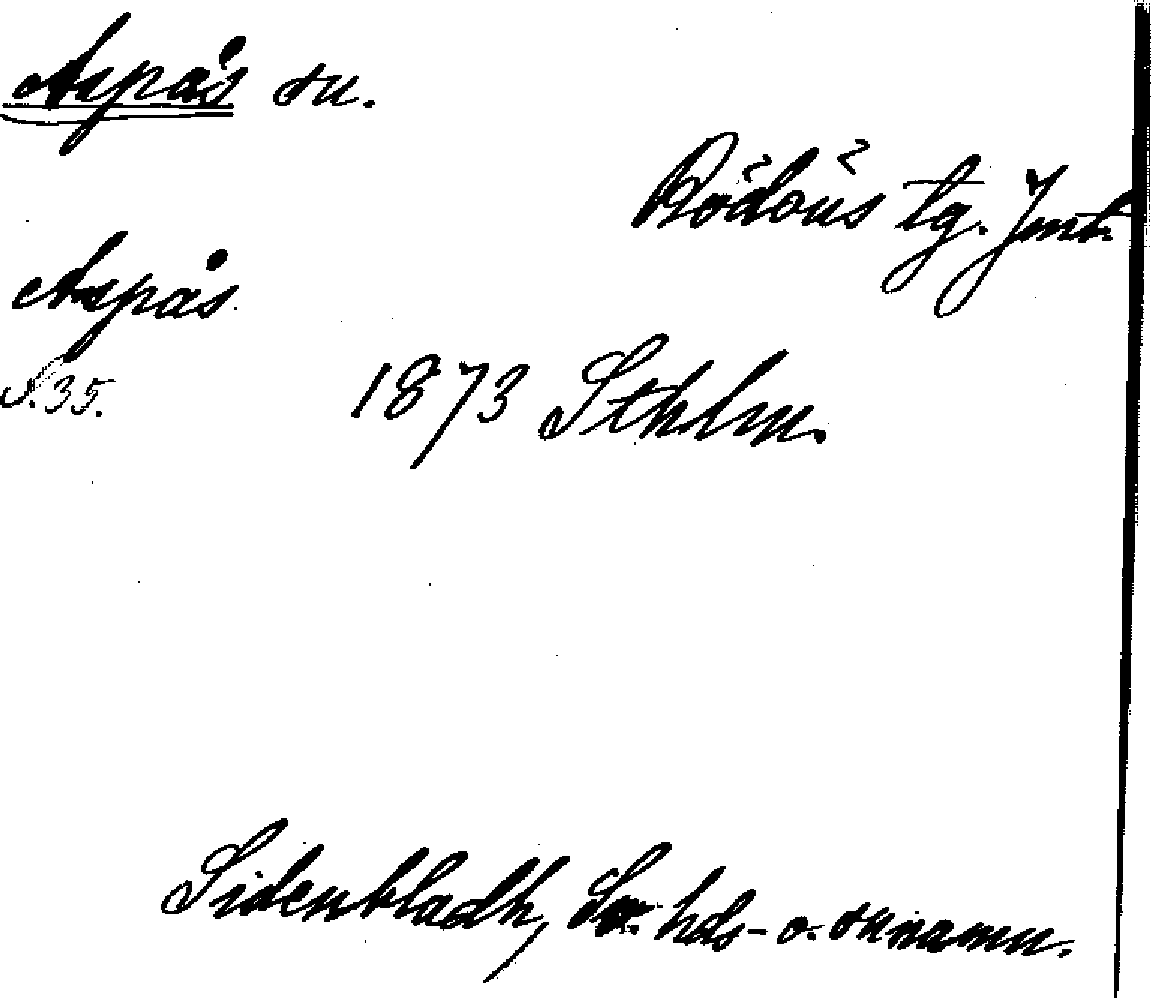 Aspås sn.
Rödöns tg. Jmtl.
Aspås
S. 35.
1873 Sthlm.
Sidenbladh, Sv. hds- o. sknamn.